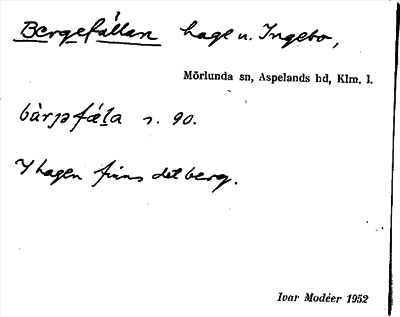 Bergefállan hage u. Ingebo,
Mörlunda sn, Aspelands hd, Klm. l.
bàrjəfǽḻa s. 90.
I hagen finns det berg.
Ivar Modéer 1952